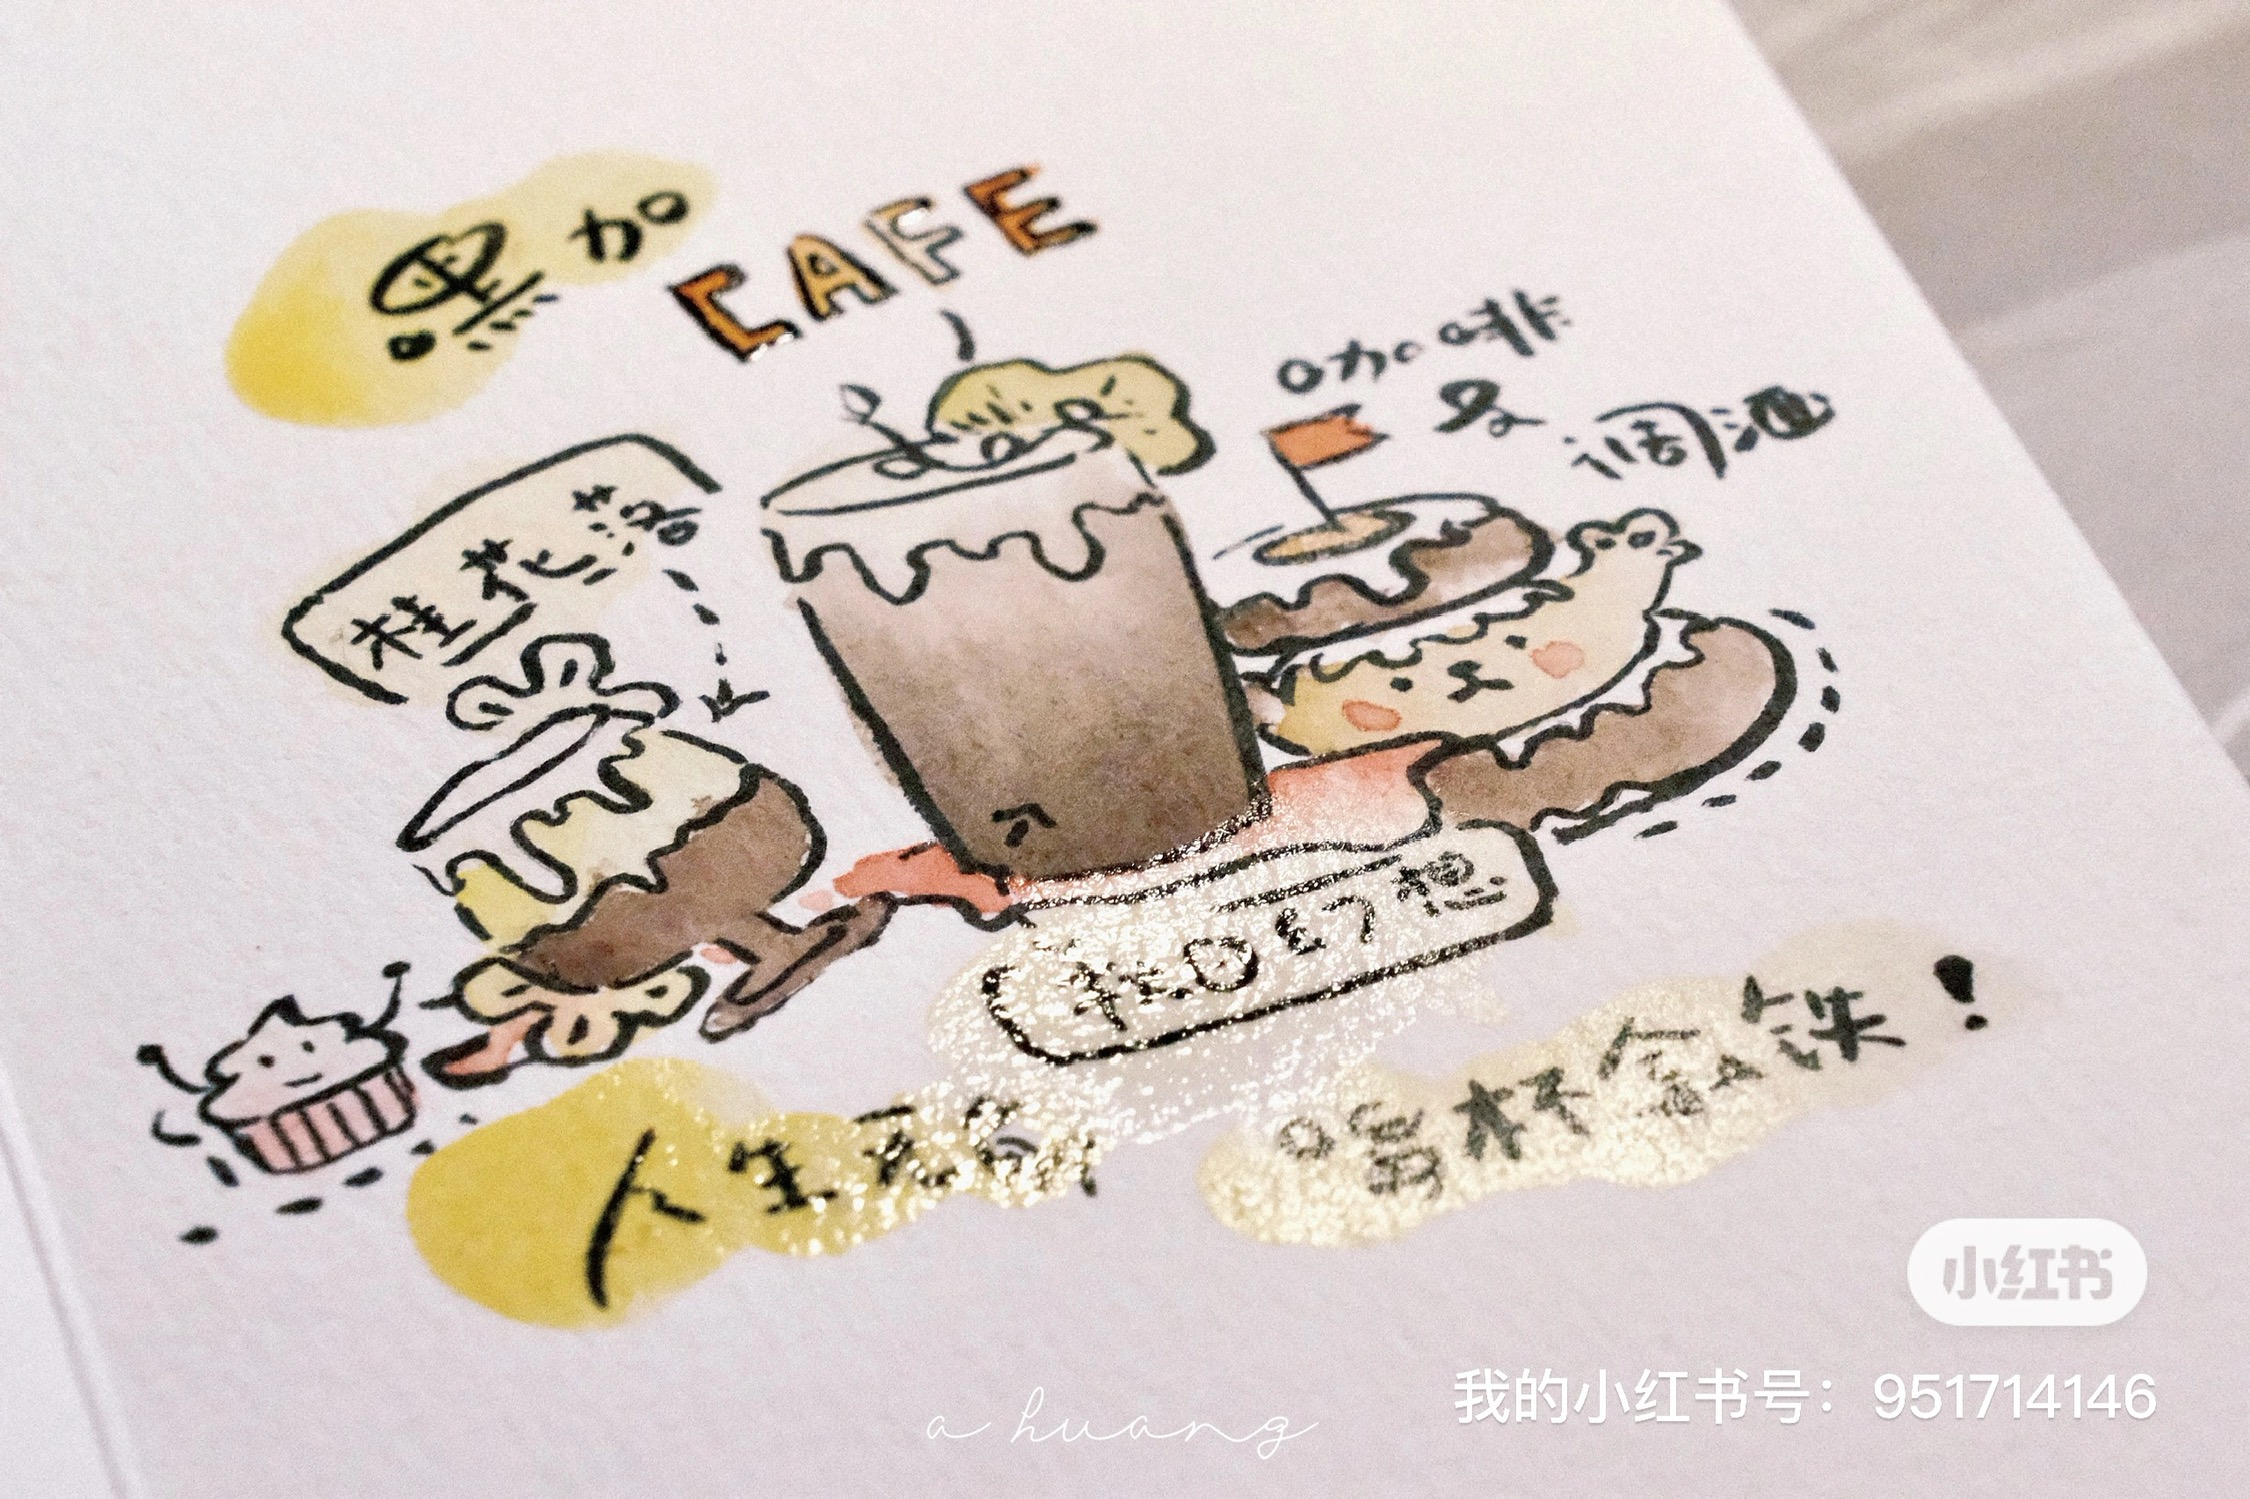 黑加
CAFE
咖啡
及
调酒
桂花落
桂口幻想
人生无解
喝杯拿铁！
小红书
我的小红书号：951714146
a huang